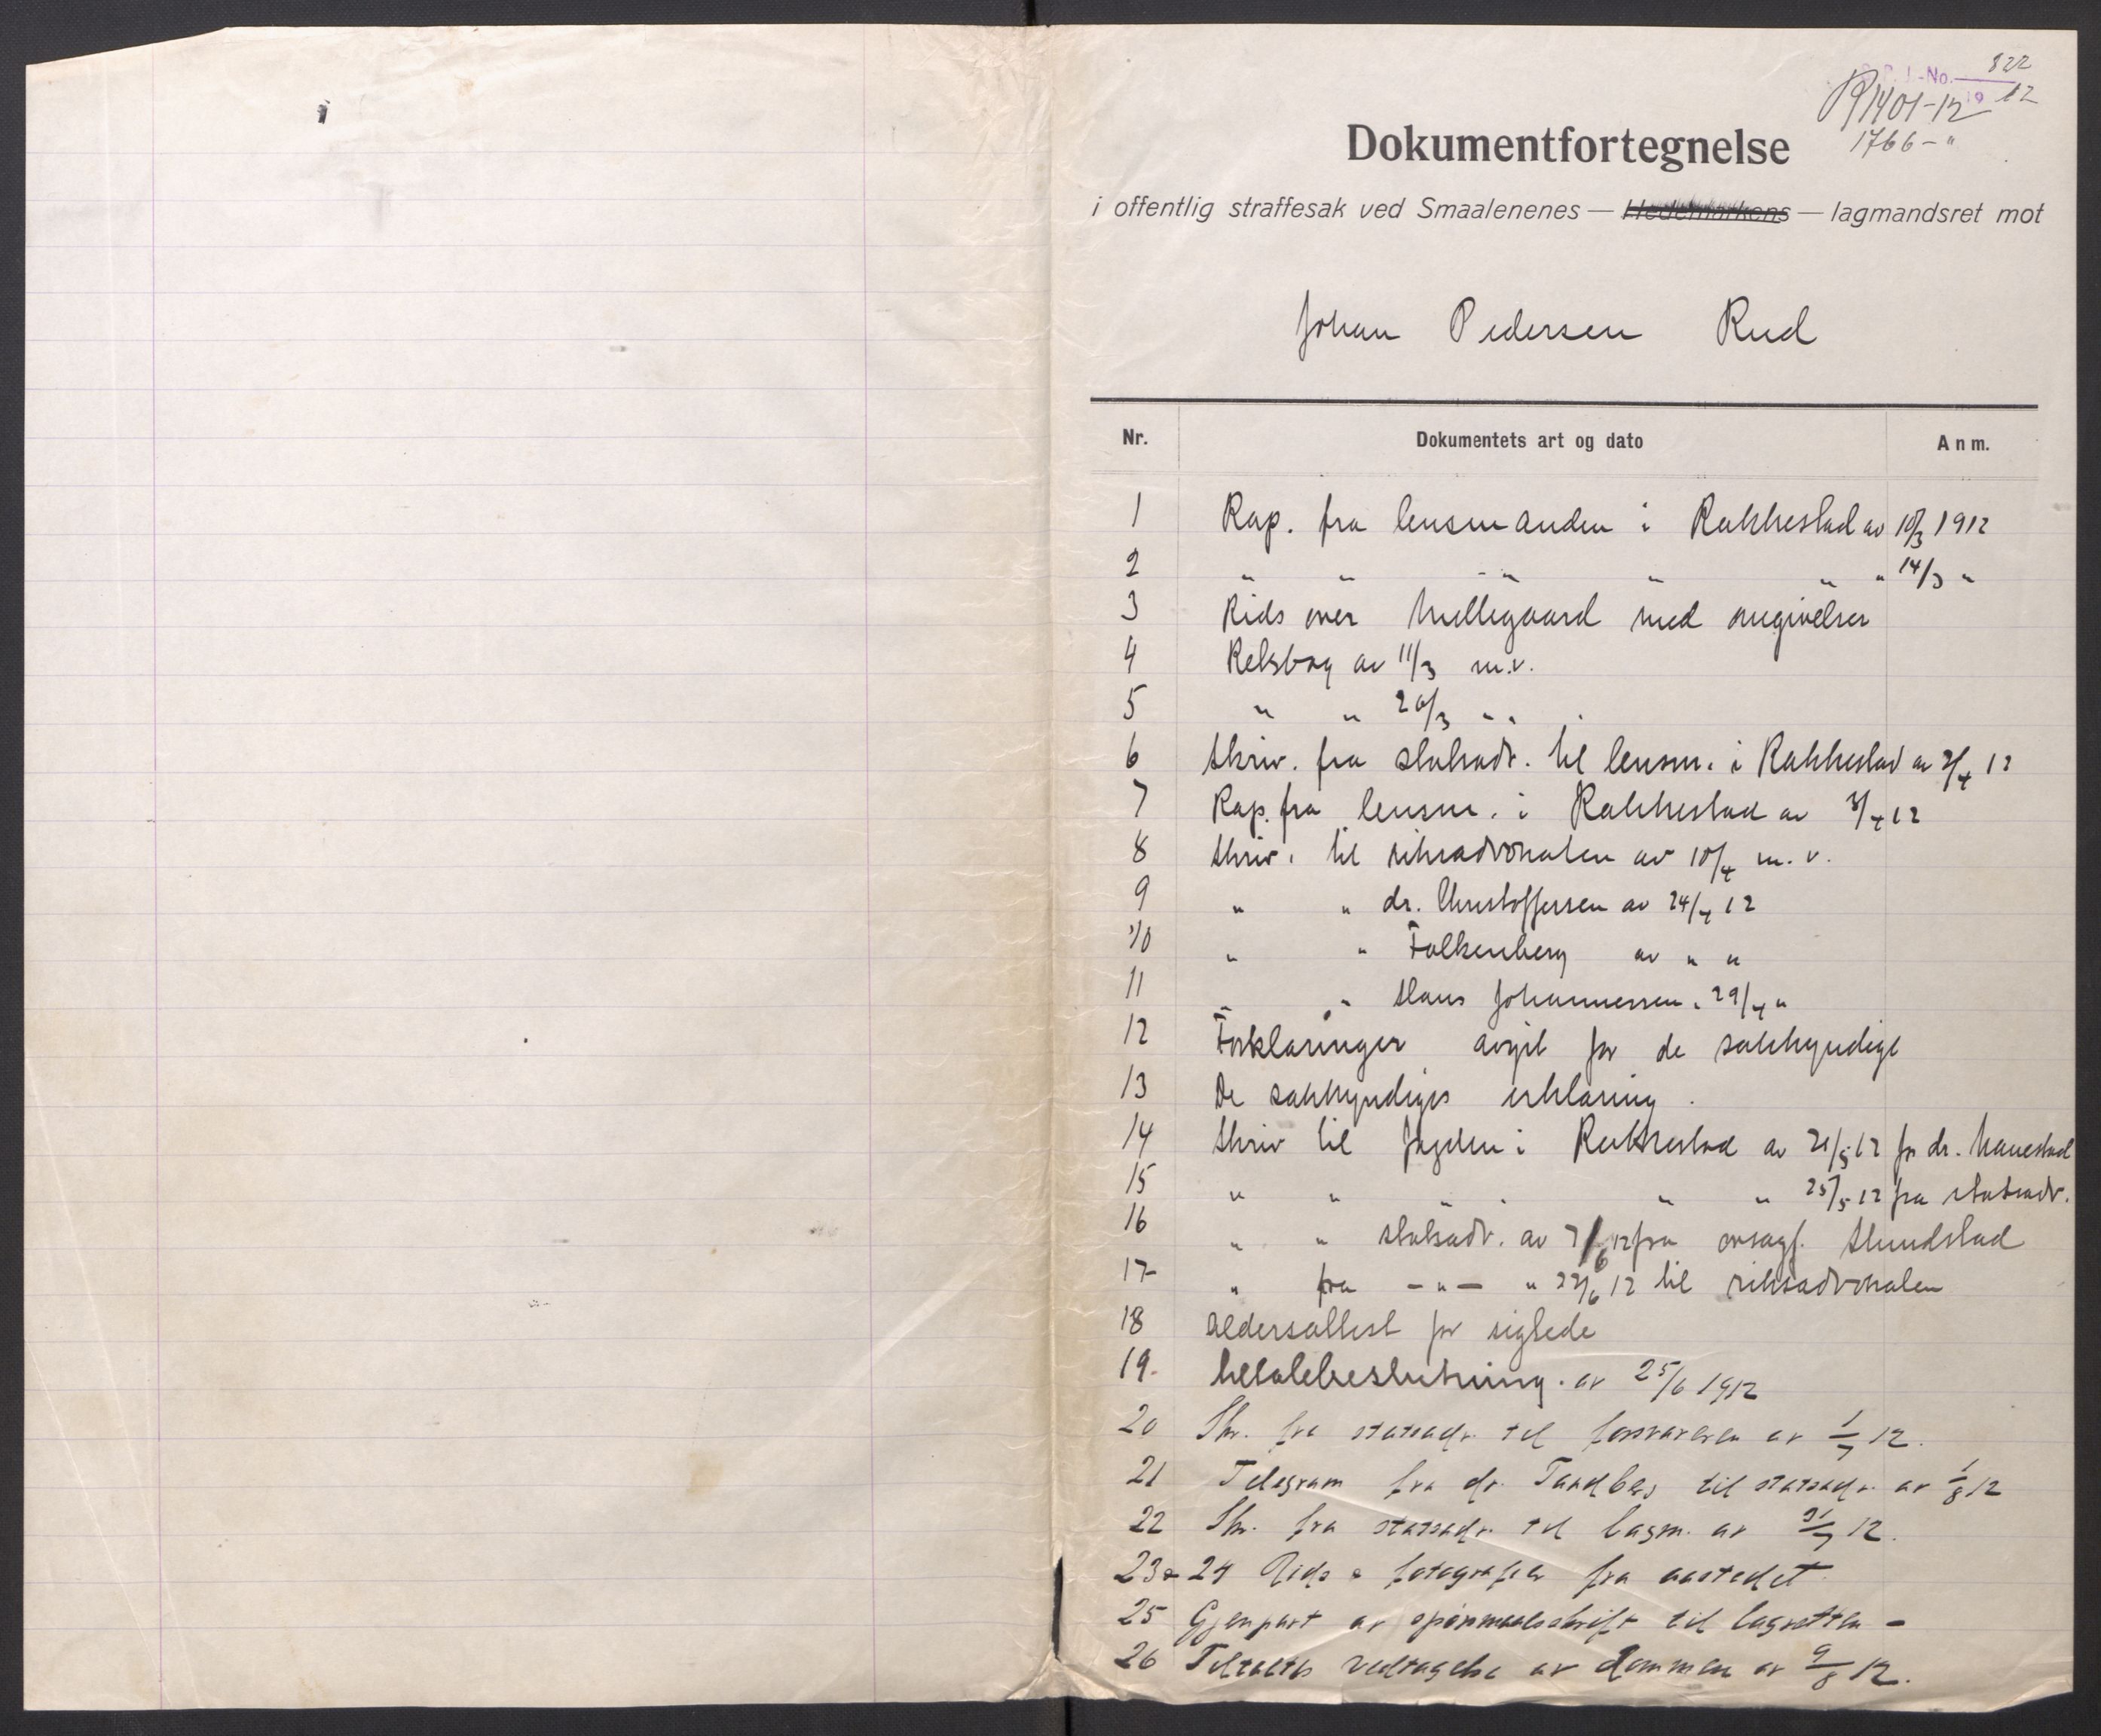 S.P. J.-No. 822
19 12
R 1401-12
1766 - "
Dokumentfortegnelse
i offentlig straffesak ved Smaalenenes — Hedemarkens — lagmandsret mot
Johan Pedersen Rud
Nr. Dokumentets art og dato Anm.
1 Rap. fra lensmanden i Rakkestad av 10/3 1912
2 " " - " " " " 14/3 "
3 Rids over Mellegaard med omgivelser
4 Retsbog av 11/3 m.v.
5 " " 26/3 " "
6 Skriv. fra statsadv. til lensm. i Rakkestad av 2/4 12
7 Rap. fra lensm. i Rakkestad av 3/4 12
8 Skriv. til riksadvokaten av 10/4 m.v.
9 " " dr. Christoffersen av 24/4 12
10 " " Falkenberg av " "
11 " " Hans Johannessen " 29/4 "
12 Forklaringer avgit for de sakkyndige
13 De sakkyndiges erklæring.
14 Skriv til fogden i Rakkestad av 21/5 12 fra dr.
15 " " " " " " 25/5 12 fra statsadv.
16 " " statsadv. av 7/6 12 fra ovsagf. Skundstad
17 " fra — " — " 22/6 12 til riksadvokaten
18 Aldersattest for sigtede
19. Tiltalebeslutning. av 25/6 1912
20 Skr. fra statsadv. til forsvareren av 1/7 12.
21 Telegram fra dr. Tandberg til statsadv. av 1/8 12
22 Skr. fra statsadv. til lagm. av 31/7 12.
23 & 24 Rids & fotografier fra aastedet
25 Gjenpart av spörsmaalsskrift til lagretten -
26 Tiltaltes vedtagelse av dommen av 9/8 12.